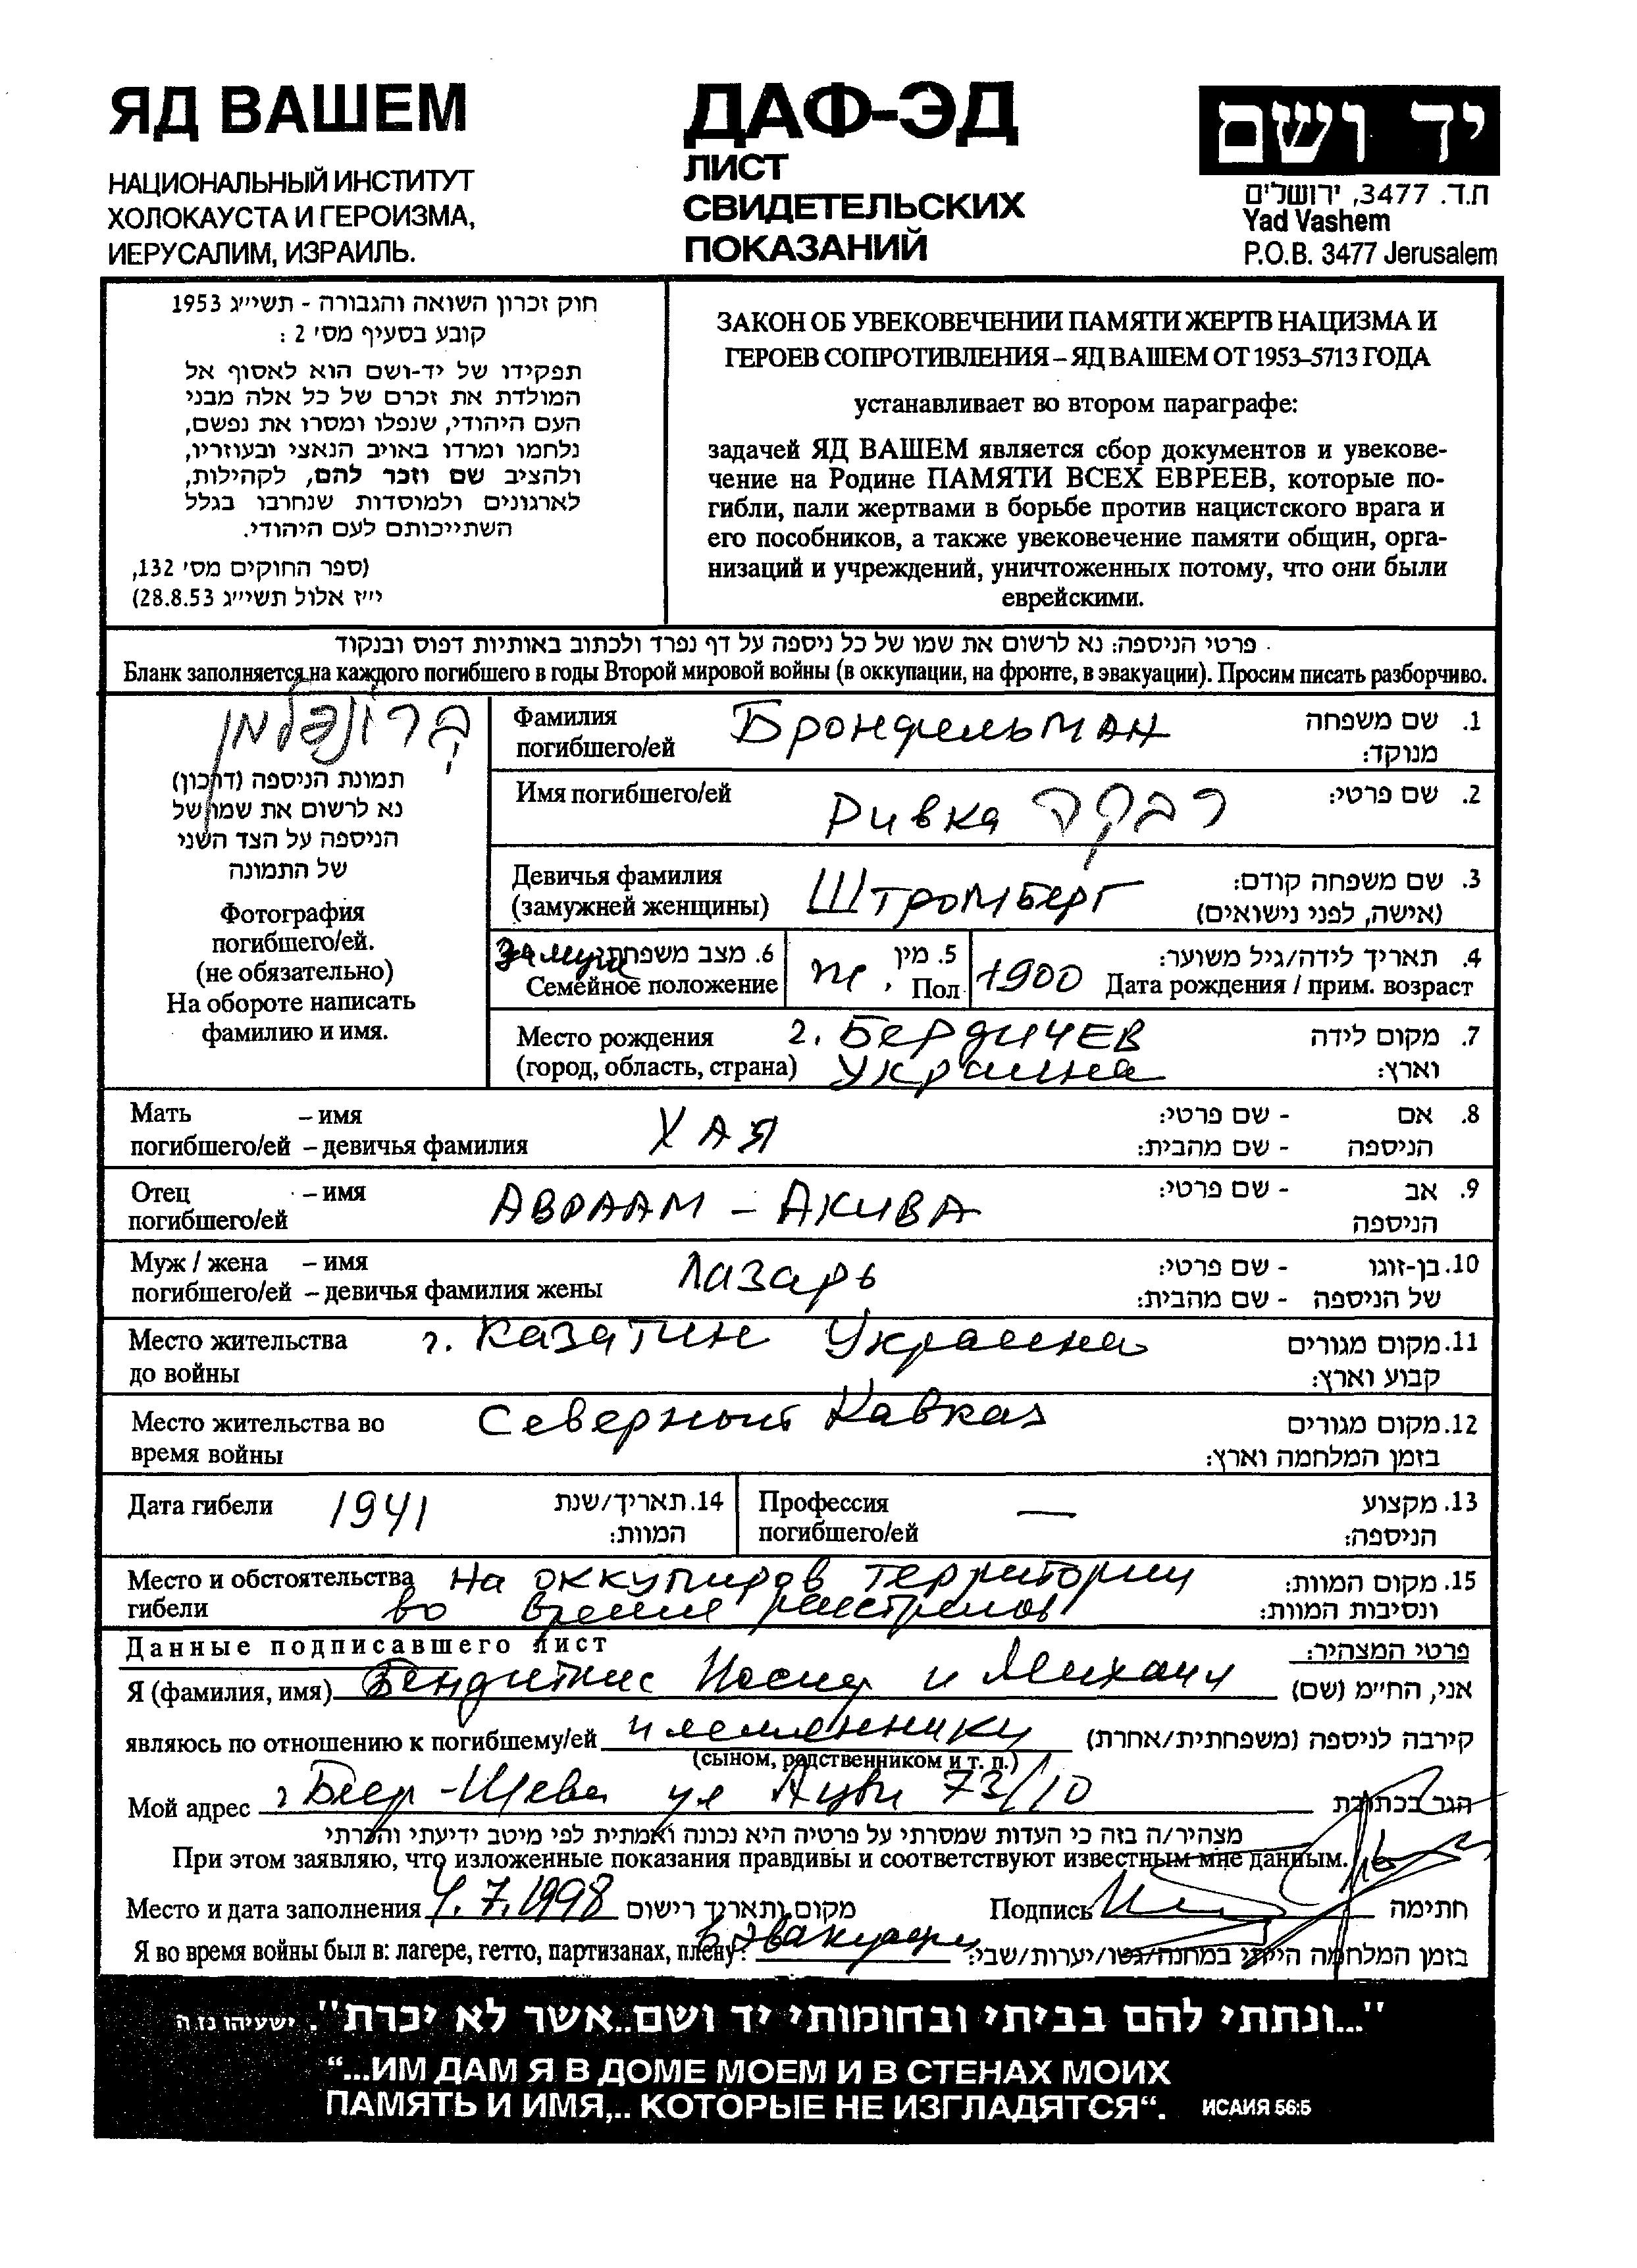 ЯД ВАШЕМ
НАЦИОНАЛЬНЫЙ ИНСТИТУТ
ХОЛОКАУСТА И ГЕРОИЗМА,
ИЕРУСАЛИМ, ИЗРАИЛЬ.
ДАФ-ЭД
ЛИСТ
СВИДЕТЕЛЬСКИХ
ПОКАЗАНИЙ
יד ושם
ת.ד. 3477, ירושלים
Yad Vashem
P.O.B. 3477 Jerusalem
חוק זכרון השואה והגבורה - תשי״ג 1953
קובע בסעיף מס׳ 2 :
תפקידו של יד-ושם הוא לאסוף אל
המולדת את זכרם של כל אלה מבני
העם היהודי, שנפלו ומסרו את נפשם,
נלחמו ומרדו באויב הנאצי ובעוזריו,
ולהציב שם וזכר להם, לקהילות,
לארגונים ולמוסדות שנחרבו בגלל
השתייכותם לעם היהודי.
(ספר החוקים מס׳ 132,
י״ז אלול תשי״ג 28.8.53)
ЗАКОН ОБ УВЕКОВЕЧЕНИИ ПАМЯТИ ЖЕРТВ НАЦИЗМА И
ГЕРОЕВ СОПРОТИВЛЕНИЯ – ЯД ВАШЕМ ОТ 1953–5713 ГОДА
устанавливает во втором параграфе:
задачей ЯД ВАШЕМ является сбор документов и увекове-
чение на Родине ПАМЯТИ ВСЕХ ЕВРЕЕВ, которые по-
гибли, пали жертвами в борьбе против нацистского врага и
его пособников, а также увековечение памяти общин, орга-
низаций и учреждений, уничтоженных потому, что они были
еврейскими.
פרטי הניספה: נא לרשום את שמו של כל ניספה על דף נפרד ולכתוב באותיות דפוס ובנקוד
Бланк заполняется на каждого погибшего в годы Второй мировой войны (в оккупации, на фронте, в эвакуации). Просим писать разборчиво.
ברונפלמן
תמונת הניספה (דרכון)
נא לרשום את שמו של
הניספה על הצד השני
של התמונה
Фотография
погибшего/ей.
(не обязательно)
На обороте написать
фамилию и имя.
Фамилия Бронфельман 1. שם משפחה
погибшего/ей מנוקד:
Имя погибшего/ей Ривка רבקה 2. שם פרטי:
Девичья фамилия Штромберг 3. שם משפחה קודם:
(замужней женщины) (אישה, לפני נישואים)
замуж 6. מצב משפחתי: 5. מין 1900 4. תאריך לידה/גיל משוער:
Семейное положение ж. Пол Дата рождения / прим. возраст
Место рождения г. Бердичев 7. מקום לידה
(город, область, страна) Украина וארץ:
Мать – имя Хая - שם פרטי: 8. אם
погибшего/ей – девичья фамилия - שם מהבית: הניספה
Отец – имя Авраам – Акива - שם פרטי: 9. אב
погибшего/ей הניספה
Муж / жена – имя Лазарь - שם פרטי: 10. בן-זוגו
погибшего/ей – девичья фамилия жены - שם מהבית: של הניספה
Место жительства г. Казатин Украина 11. מקום מגורים
до войны קבוע וארץ:
Место жительства во Северный Кавказ 12. מקום מגורים
время войны בזמן המלחמה וארץ:
Дата гибели 1941 14. תאריך/שנת Профессия — 13. מקצוע
המוות: погибшего/ей הניספה:
Место и обстоятельства На оккупиров территории 15. מקום המוות:
гибели во время расстрелов ונסיבות המוות:
Данные подписавшего лист פרטי המצהיר:
Я (фамилия, имя) Бендиткис Иосиф и Михаил אני, הח״מ (שם)
являюсь по отношению к погибшему/ей племянники קירבה לניספה (משפחתית/אחרת)
(сыном, родственником и т. п.)
Мой адрес г Беер-Шева ул 73/10 הגר בכתובת
מצהיר/ה בזה כי העדות שמסרתי על פרטיה היא נכונה ואמתית לפי מיטב ידיעתי והכרתי
При этом заявляю, что изложенные показания правдивы и соответствуют известным мне данным.
Место и дата заполнения 4.7.1998 מקום ותאריך רישום Подпись חתימה
Я во время войны был в: лагере, гетто, партизанах, плену? Эвакуации בזמן המלחמה הייתי במחנה/גטו/יערות/שבי:
"...ונתתי להם בביתי ובחומותי יד ושם..אשר לא יכרת". ישעיהו נו ה
“...ИМ ДАМ Я В ДОМЕ МОЕМ И В СТЕНАХ МОИХ
ПАМЯТЬ И ИМЯ,.. КОТОРЫЕ НЕ ИЗГЛАДЯТСЯ“. ИСАИЯ 56:5